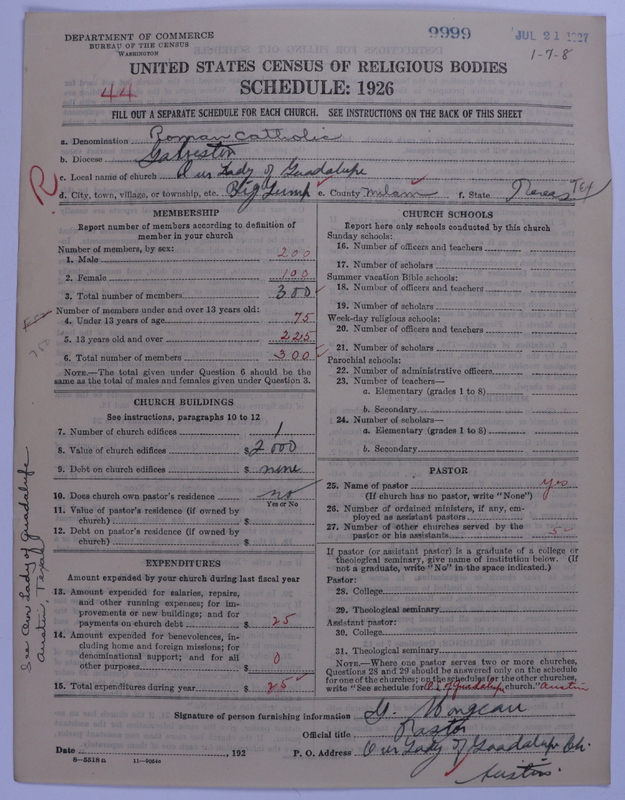 DEPARTMENT OF COMMERCE
BUREAU OF THE CENSUS
WASHINGTON
9999
JUL 21 1927
1-7-8
UNITED STATES CENSUS OF RELIGIOUS BODIES
44
SCHEDULE: 1926
FILL OUT A SEPARATE SCHEDULE FOR EACH CHURCH. SEE INSTRUCTIONS ON THE BACK OF THIS SHEET
a. Denomination Roman Catholic
b. Diocese Galveston
c. Local name of church Our Lady of Guadalupe
R
d. City, town, village, or township, etc. Big Lump e. County Milam f. State Texas Tex
MEMBERSHIP
Report number of members according to definition of
member in your church
Number of members, by sex:
1. Male 200
2. Female 100
3. Total number of members 300
Number of members under and over 13 years old:
4. Under 13 years of age 75
5. 13 years old and over 225
6. Total number of members 300
NOTE.—The total given under Question 6 should be
same as the total of males and females given under Question 3.
CHURCH BUILDINGS
See instructions, paragraphs 10 to 12
7. Number of church edifices 1
8. Value of church edifices $ 2000
9. Debt on church edifices $ none
10. Does church own pastor's residence no
Yes or No
11. Value of pastor's residence (if owned by
church) $
12. Debt on pastor's residence (if owned by
church) $
EXPENDITURES
Amount expended by your church during last fiscal year
13. Amount expended for salaries, repairs,
and other running expenses; for im-
provements or new buildings; and for
payments on church debt $ 25
14. Amount expended for benevolences, in-
cluding home and foreign missions; for
denominational support; and for all
other purposes $ 0
15. Total expenditures during year $ 25
See Our Lady of Guadalupe
Austin, Texas
CHURCH SCHOOLS
Report here only schools conducted by this church
Sunday schools:
16. Number of officers and teachers
17. Number of scholars
Summer vacation Bible schools:
18. Number of officers and teachers
19. Number of scholars
Week-day religious schools:
20. Number of officers and teachers
21. Number of scholars
Parochial schools:
22. Number of administrative officers
23. Number of teachers—
a. Elementary (grades 1 to 8)
b. Secondary
24. Number of scholars—
a. Elementary (grades 1 to 8)
b. Secondary
PASTOR
25. Name of pastor yes
(If church has no pastor, write "None")
26. Number of ordained ministers, if any, em-
ployed as assistant pastors
27. Number of other churches served by the
pastor or his assistants 5
If pastor (or assistant pastor) is a graduate of a college or
theological seminary, give name of institution below. (If
not a graduate, write "No" in the space indicated.)
Pastor:
28. College
29. Theological seminary
Assistant pastor:
30. College
31. Theological seminary
NOTE.—Where one pastor serves two or more churches,
Questions 28 and 29 should be answered only on the schedule
for one of the churches; on the schedules for the other churches,
write "See schedule for O L of Guadalupe church." Austin
Signature of person furnishing information G. Mongeau
Official title Pastor
Date , 192 P. O. Address Our Lady of Guadalupe Ch.
8—5518 a
Austin.